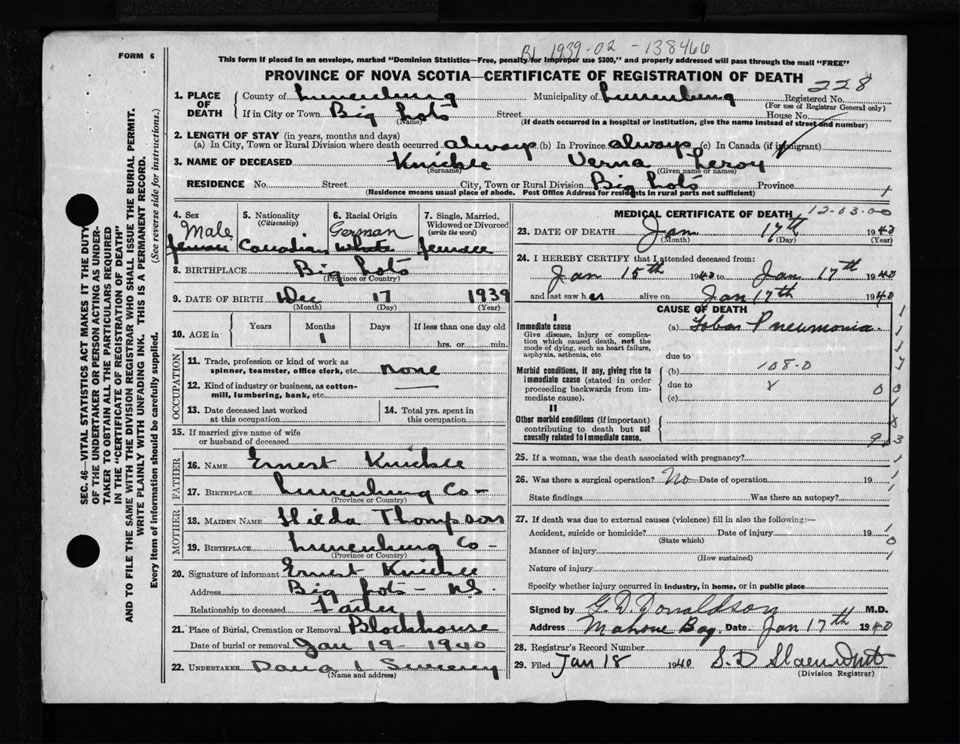 B 1939-02-138466
FORM 6
This form if placed in an envelope, marked "Dominion Statistics—Free, penalty for improper use $300," and properly addressed will pass through the mail "FREE"
PROVINCE OF NOVA SCOTIA—CERTIFICATE OF REGISTRATION OF DEATH
228
1. PLACE OF DEATH
County of Lunenburg Municipality of Lunenburg Registered No.
(For use of Registrar General only)
If in City or Town Big Lots Street House No.
(Name) (If death occurred in a hospital or institution, give the name instead of street and number)
2. LENGTH OF STAY (in years, months and days)
(a) In City, Town or Rural Division where death occurred always (b) In Province always (c) In Canada (if immigrant)
3. NAME OF DECEASED Knickle Verna Leroy
(Surname) (Given name or names)
RESIDENCE No. Street City, Town or Rural Division Big Lots Province
(Residence means usual place of abode. Post Office Address for residents in rural parts not sufficient)
4. Sex Male
5. Nationality (Citizenship) Canadian
6. Racial Origin German White
7. Single, Married, Widowed or Divorced (write the word)
8. BIRTHPLACE Big Lots
(Province or Country)
9. DATE OF BIRTH Dec 17 1939
(Month) (Day) (Year)
10. AGE in Years Months Days If less than one day old
1 hrs. or min.
OCCUPATION
11. Trade, profession or kind of work as spinner, teamster, office clerk, etc. none
12. Kind of industry or business, as cotton-mill, lumbering, bank, etc. —
13. Date deceased last worked at this occupation
14. Total yrs. spent in this occupation
15. If married give name of wife or husband of deceased
FATHER
16. NAME Ernest Knickle
17. BIRTHPLACE Lunenburg Co-
(Province or Country)
MOTHER
18. MAIDEN NAME Hilda Thompson
19. BIRTHPLACE Lunenburg Co-
(Province or Country)
20. Signature of informant Ernest Knickle
Address Big Lots - N.S.
Relationship to deceased Father
21. Place of Burial, Cremation or Removal Blockhouse
Date of burial or removal Jan 19 1940
22. UNDERTAKER
(Name and address)
MEDICAL CERTIFICATE OF DEATH 12-03-00
23. DATE OF DEATH Jan 17th 1940
(Month) (Day) (Year)
24. I HEREBY CERTIFY that I attended deceased from:
Jan 15th 1940 to Jan 17th 1940
and last saw her alive on Jan 17th 1940
CAUSE OF DEATH
I
Immediate cause
Give disease, injury or complication which caused death, not the mode of dying, such as heart failure, asphyxia, asthenia, etc
(a) Lobar Pneumonia
due to
Morbid conditions, if any, giving rise to immediate cause (stated in order proceeding backwards from immediate cause).
(b) 108-0
due to 8
(c)
II
Other morbid conditions (if important) contributing to death but not causally related to immediate cause.
25. If a woman, was the death associated with pregnancy?
26. Was there a surgical operation? No Date of operation 19
State findings Was there an autopsy?
27. If death was due to external causes (violence) fill in also the following:—
Accident, suicide or homicide? Date of injury 19
(State which)
Manner of injury
(How sustained)
Nature of injury
Specify whether injury occurred in industry, in home, or in public place
Signed by G. D. Donaldson M.D.
Address Mahone Bay Date Jan 17th 1940
28. Registrar's Record Number
29. Filed Jan 18 1940
(Division Registrar)
SEC. 46—VITAL STATISTICS ACT MAKES IT THE DUTY
OF THE UNDERTAKER OR PERSON ACTING AS UNDER-
TAKER TO OBTAIN ALL THE PARTICULARS REQUIRED
IN THE "CERTIFICATE OF REGISTRATION OF DEATH"
AND TO FILE THE SAME WITH THE DIVISION REGISTRAR WHO SHALL ISSUE THE BURIAL PERMIT.
WRITE PLAINLY WITH UNFADING INK. THIS IS A PERMANENT RECORD.
Every item of information should be carefully supplied. (See reverse side for instructions.)